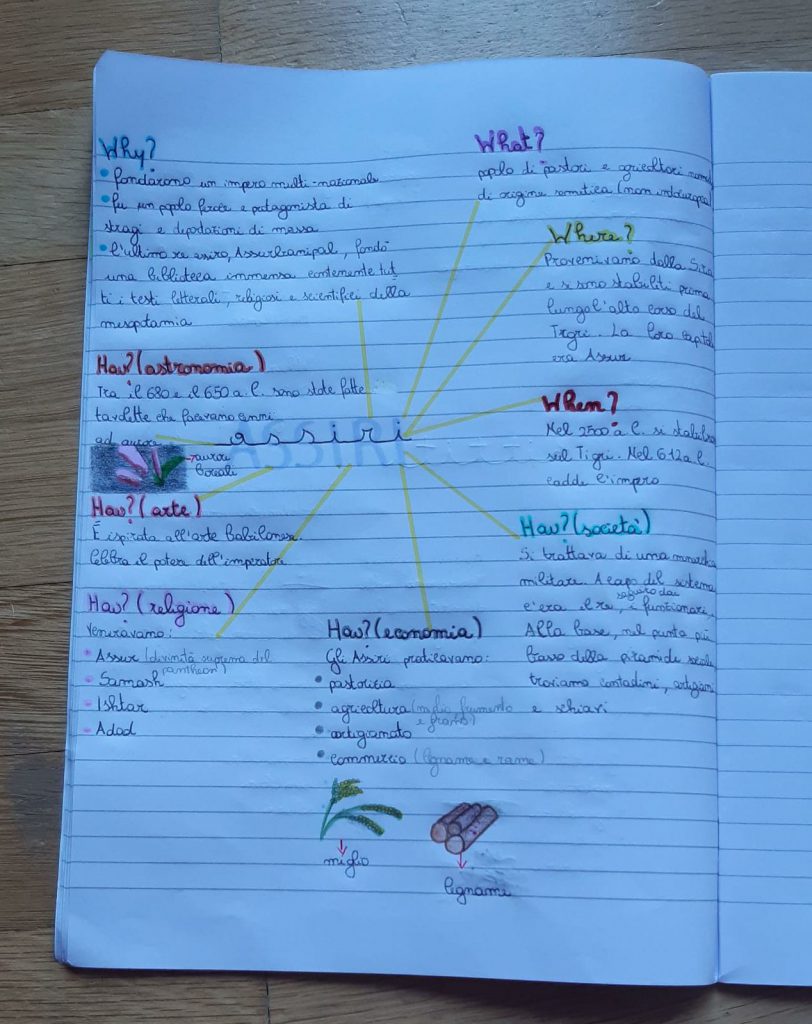 Why?
• fondarono un impero multi-nazionale
• fu un popolo feroce e protagonista di
stragi e deportazioni di massa
• l'ultimo re assiro, Assurbanipal, fondò
una biblioteca immensa contenente tut
ti i testi litterali, religiosi e scientifici della
mesopotamia
What?
popolo di pastori e agricoltori
di origine semitica (non indoeuropea)
Where?
Provenivano dalla Siria
e si sono stabiliti prima
lungo l'alto corso del
Tigri. La loro capitale
era Assur
How? (astronomia)
Tra il 680 e il 650 a.C. sono state fatte
tavolette che facevano cenni
ad aurore
aurore
boreali
assiri
When?
Nel 2500 a.C. si
sul Tigri. Nel 612 a.C.
cadde l'impero
How? (arte)
È ispirata all'arte babilonese.
Celebra il potere dell'imperatore
How? (società)
Si trattava di una
militare. A capo del sistema
c'era il re, seguito dai funzionari,
Alla base, nel punto più
basso della piramide sociale
troviamo contadini, artigiani
e schiavi
How? (religione)
Veneravano:
• Assur (divinità suprema del
pantheon)
• Samash
• Ishtar
• Adad
How? (economia)
Gli Assiri praticavano:
• pastorizia
• agricoltura (miglio, frumento
e
• artigianato
• commercio (legname e rame)
miglio
legnami